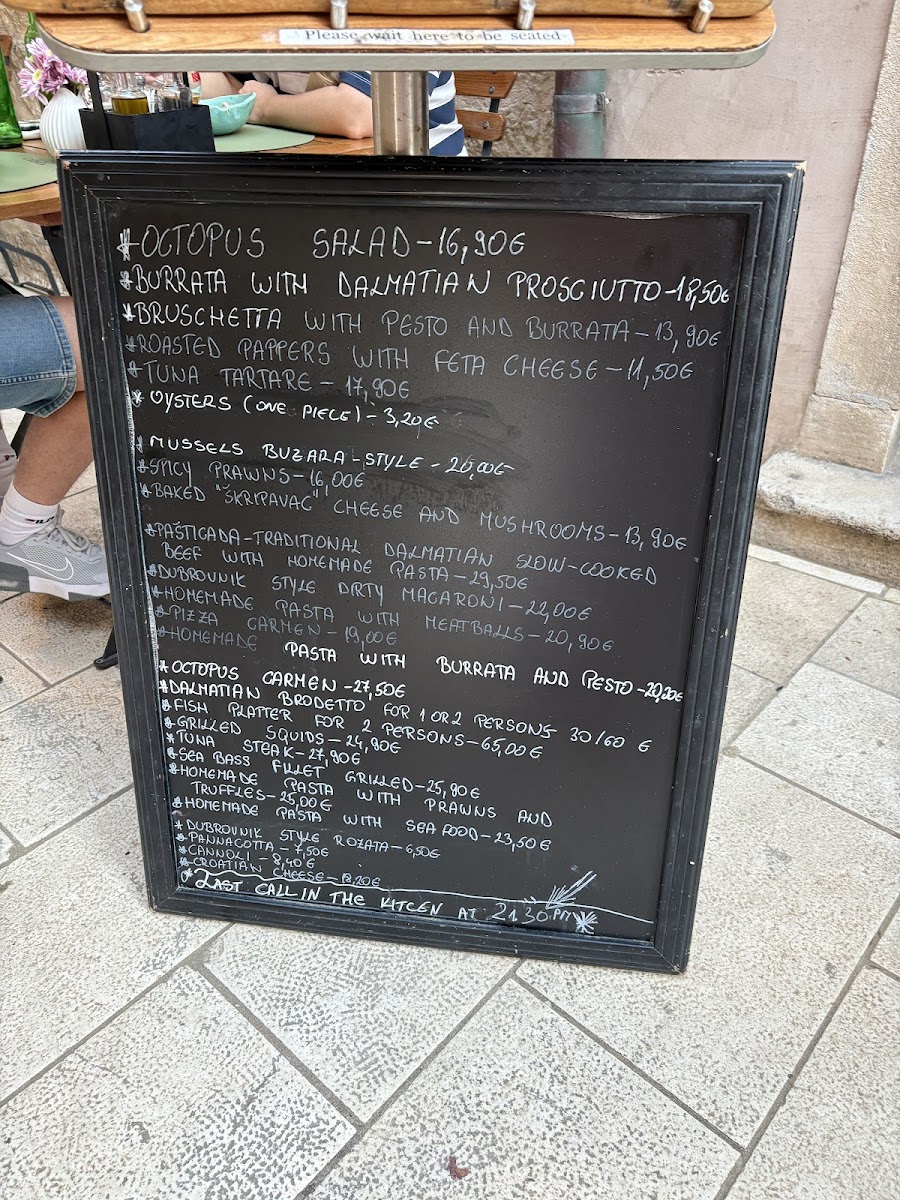 Please wait here to be seated
*OCTOPUS SALAD-16,90€
*BURRATA WITH DALMATIAN PROSCIUTTO-18,50€
*BRUSCHETTA WITH PESTO AND BURRATA-13,90€
*ROASTED PAPPERS WITH FETA CHEESE-11,50€
*TUNA TARTARE-17,90€
*OYSTERS (ONE PIECE)-3,20€
*MUSSELS BUZARA-STYLE-26,00€
*SPICY PRAWNS-16,00€
*BAKED "ŠKRIPAVAC" CHEESE AND MUSHROOMS-13,90€
*PAŠTICADA-TRADITIONAL DALMATIAN SLOW-COOKED
BEEF WITH HOMEMADE PASTA-29,50€
*DUBROVNIK STYLE DIRTY MACARONI-22,00€
*HOMEMADE PASTA WITH MEATBALLS-20,90€
*PIZZA CARMEN-19,00€
*HOMEMADE PASTA WITH BURRATA AND PESTO-20,20€
*OCTOPUS CARMEN-27,50€
*DALMATIAN BRODETTO FOR 1 OR 2 PERSONS 30/60 €
*FISH PLATTER FOR 2 PERSONS-65,00€
*GRILLED SQUIDS-24,90€
*TUNA STEAK-27,90€
*SEA BASS FILLET GRILLED-25,90€
*HOMEMADE PASTA WITH PRAWNS AND
TRUFFLES-25,00€
*HOMEMADE PASTA WITH SEA FOOD-23,50€
*DUBROVNIK STYLE ROZATA-6,50€
*PANNACOTTA-7,50€
*CANNOLI-8,40€
*CROATIAN CHEESE-18,20€
*LAST CALL IN THE KITCEN AT 21:30 PM*